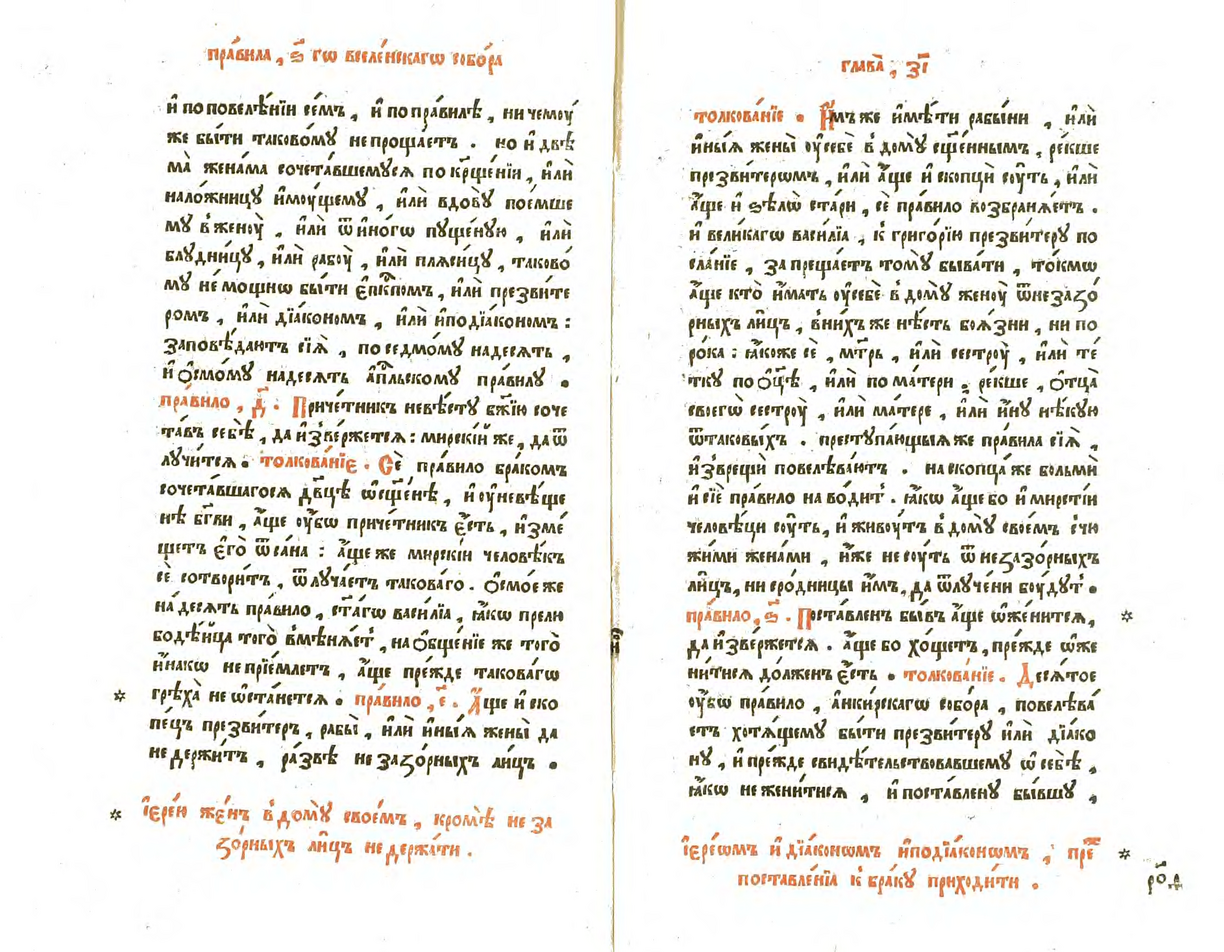 пра́вила , ѕ҃ гѡ вселе́нскагѡ собо́ра
и҆ по повелѣ́нїи се́мъ , и҆ по пра́вилѣ , ни чемоу̀
же бы́ти тако́вомꙋ не проща́етъ . но и҆ двѣ
ма̀ жена́ма сочета́вшемꙋсѧ по кр҃ще́нїи , и҆лѝ
нало́жницꙋ и҆мꙋ́щемꙋ , и҆лѝ вдовꙋ̀ пое́мше
мꙋ в женоу̀ , и҆лѝ ѿ и҆но́гѡ пꙋще́нꙋю , и҆лѝ
блꙋдни́цꙋ , и҆лѝ рабоу̀ , и҆лѝ плѧси́цꙋ , тако́во
мꙋ не мо́щнѡ бы́ти є҆пⷭ҇кпомъ , и҆лѝ презви́те
ромъ , и҆лѝ дїа́кономъ , и҆лѝ и҆подїа́кономъ :
заповѣ́даютъ сїѧ̀ , по седмо́мꙋ на́десѧть ,
и҆ ѻ҆смо́мꙋ на́десѧть а҆пⷭ҇льскомꙋ пра́вилꙋ .
пра́вило , д҃ . Приче́тникъ невѣ́стꙋ бж҃їю соче
та́въ себѣ̀ , да и҆зве́ржетсѧ : мирскі́й же , да ѿ
лꙋчи́тсѧ . толкова́нїе . Сѐ пра́вило бра́комъ
сочета́вшагосѧ дв҃цѣ ѡ҆сщ҃е́нѣ , и҆ оу҆невѣ́ще
нѣ бг҃ви , а҆́ще оу҆́бѡ приче́тникъ є҆́сть , и҆зме́
щетъ є҆го̀ ѿ са́на : а҆́ще же ми́рскїи человѣ́къ
сѐ сотвори́тъ , ѿлꙋча́етъ такова́го . ѻ҆смо́е же
на́десѧть пра́вило , ст҃а́гѡ васи́лїа , ꙗ҆́кѡ прелю
бодѣ́йца того̀ вмѣнѧ́етъ , на ѻ҆бще́нїе же того̀
и҆на́кѡ не прїе́млетъ , а҆́ще пре́жде тако́вагѡ
грѣха̀ не ѡ҆ста́нетсѧ . пра́вило , є҃ . А҆́ще и҆ ско
пе́цъ презви́теръ , рабы̀ , и҆лѝ и҆ны́ѧ жены̀ да
не держи́тъ , ра́звѣ не зазо́рныхъ ли́цъ .
* і҆ере́ю же́нъ в домꙋ̀ свое́мъ , кромѣ̀ не за
зо́рныхъ ли́цъ не держа́ти .
глава̀ , з҃і
толкова́нїе . И҆́мъ же и҆мѣ́ти рабы́ни , и҆лѝ
и҆ны́ѧ жены̀ оу҆ себѐ в домꙋ̀ сщ҃е́ннымъ , ре́кше
презви́терѡмъ , и҆лѝ а҆́ще и҆ скопцы̀ сꙋ́ть , и҆лѝ
а҆́ще и҆ ѕѣлѡ̀ ста́ри , сѐ пра́вило возбранѧ́етъ .
и҆ вели́кагѡ васи́лїа , к григо́рїю презви́терꙋ по
сла́нїе , запреща́етъ томꙋ̀ быва́ти , то́кмѡ
а҆́ще кто̀ и҆́мать оу҆ себѐ в домꙋ̀ женоу̀ ѿ незазо́
рныхъ ли́цъ , в ни́хъ же нѣ́сть боѧ́зни , ни по
ро́ка : ꙗ҆́коже сѐ , мт҃рь , и҆лѝ сестроу̀ , и҆лѝ те́
ткꙋ по ѻ҆ц҃ѣ̀ , и҆лѝ по ма́тери , ре́кше , ѻ҆тца̀
своегѡ̀ сестроу̀ , и҆лѝ ма́тере , и҆лѝ и҆́нꙋ нѣ́кꙋю
ѿ таковы́хъ . престꙋпа́ющыѧ же пра́вила сїѧ̀ ,
и҆зврещѝ повелѣва́ютъ . на скопца́ же бо́льми
и҆ сїѐ пра́вило наво́дит . ꙗ҆́кѡ а҆́ще бо и҆ ми́рстїи
человѣ́цы сꙋ́ть , и҆ живꙋ́тъ в домꙋ̀ свое́мъ с чю
жи́ми жена́ми , и҆̀же не сꙋ́ть ѿ незазо́рныхъ
ли́цъ , ни сро́дницы и҆̀мъ , да ѿлꙋче́ни бꙋ́дꙋт .
пра́вило , ѕ҃ . Поста́вленъ бы́въ а҆́ще ѡ҆же́нитсѧ , *
да и҆зве́ржетсѧ . а҆́ще бо хо́щетъ , пре́жде ѡ҆же
ни́тисѧ до́лженъ є҆́сть . толкова́нїе . Десѧ́тое
оу҆́бѡ пра́вило , а҆нки́рскагѡ собо́ра , повелѣва́
етъ хотѧ́щемꙋ бы́ти презви́терꙋ и҆лѝ дїа́ко
нꙋ , и҆ пре́жде свидѣ́тельствовавшемꙋ ѡ҆ себѣ̀ ,
ꙗ҆́кѡ не жени́тисѧ , и҆ поста́вленꙋ бы́вшꙋ ,
і҆ере́ѡмъ и҆ дїа́конѡмъ и҆подїа́конѡмъ , пре́ⷤ *
поставле́нїѧ к бра́кꙋ приходи́ти .
ро҃д